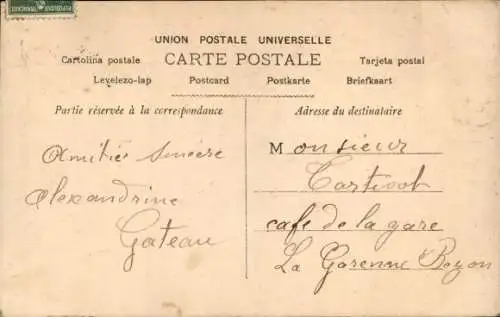 REPUBLIQUE FRANCAISE
UNION POSTALE UNIVERSELLE
CARTE POSTALE
Cartolina postale
Tarjeta postal
Levelezo-lap
Postcard
Postkarte
Briefkaart
Partie réservée à la correspondance
Amitié sincère
Alexandrine
Gateau
Adresse du destinataire
Monsieur
cafe de la gare
La Garenne Bezon